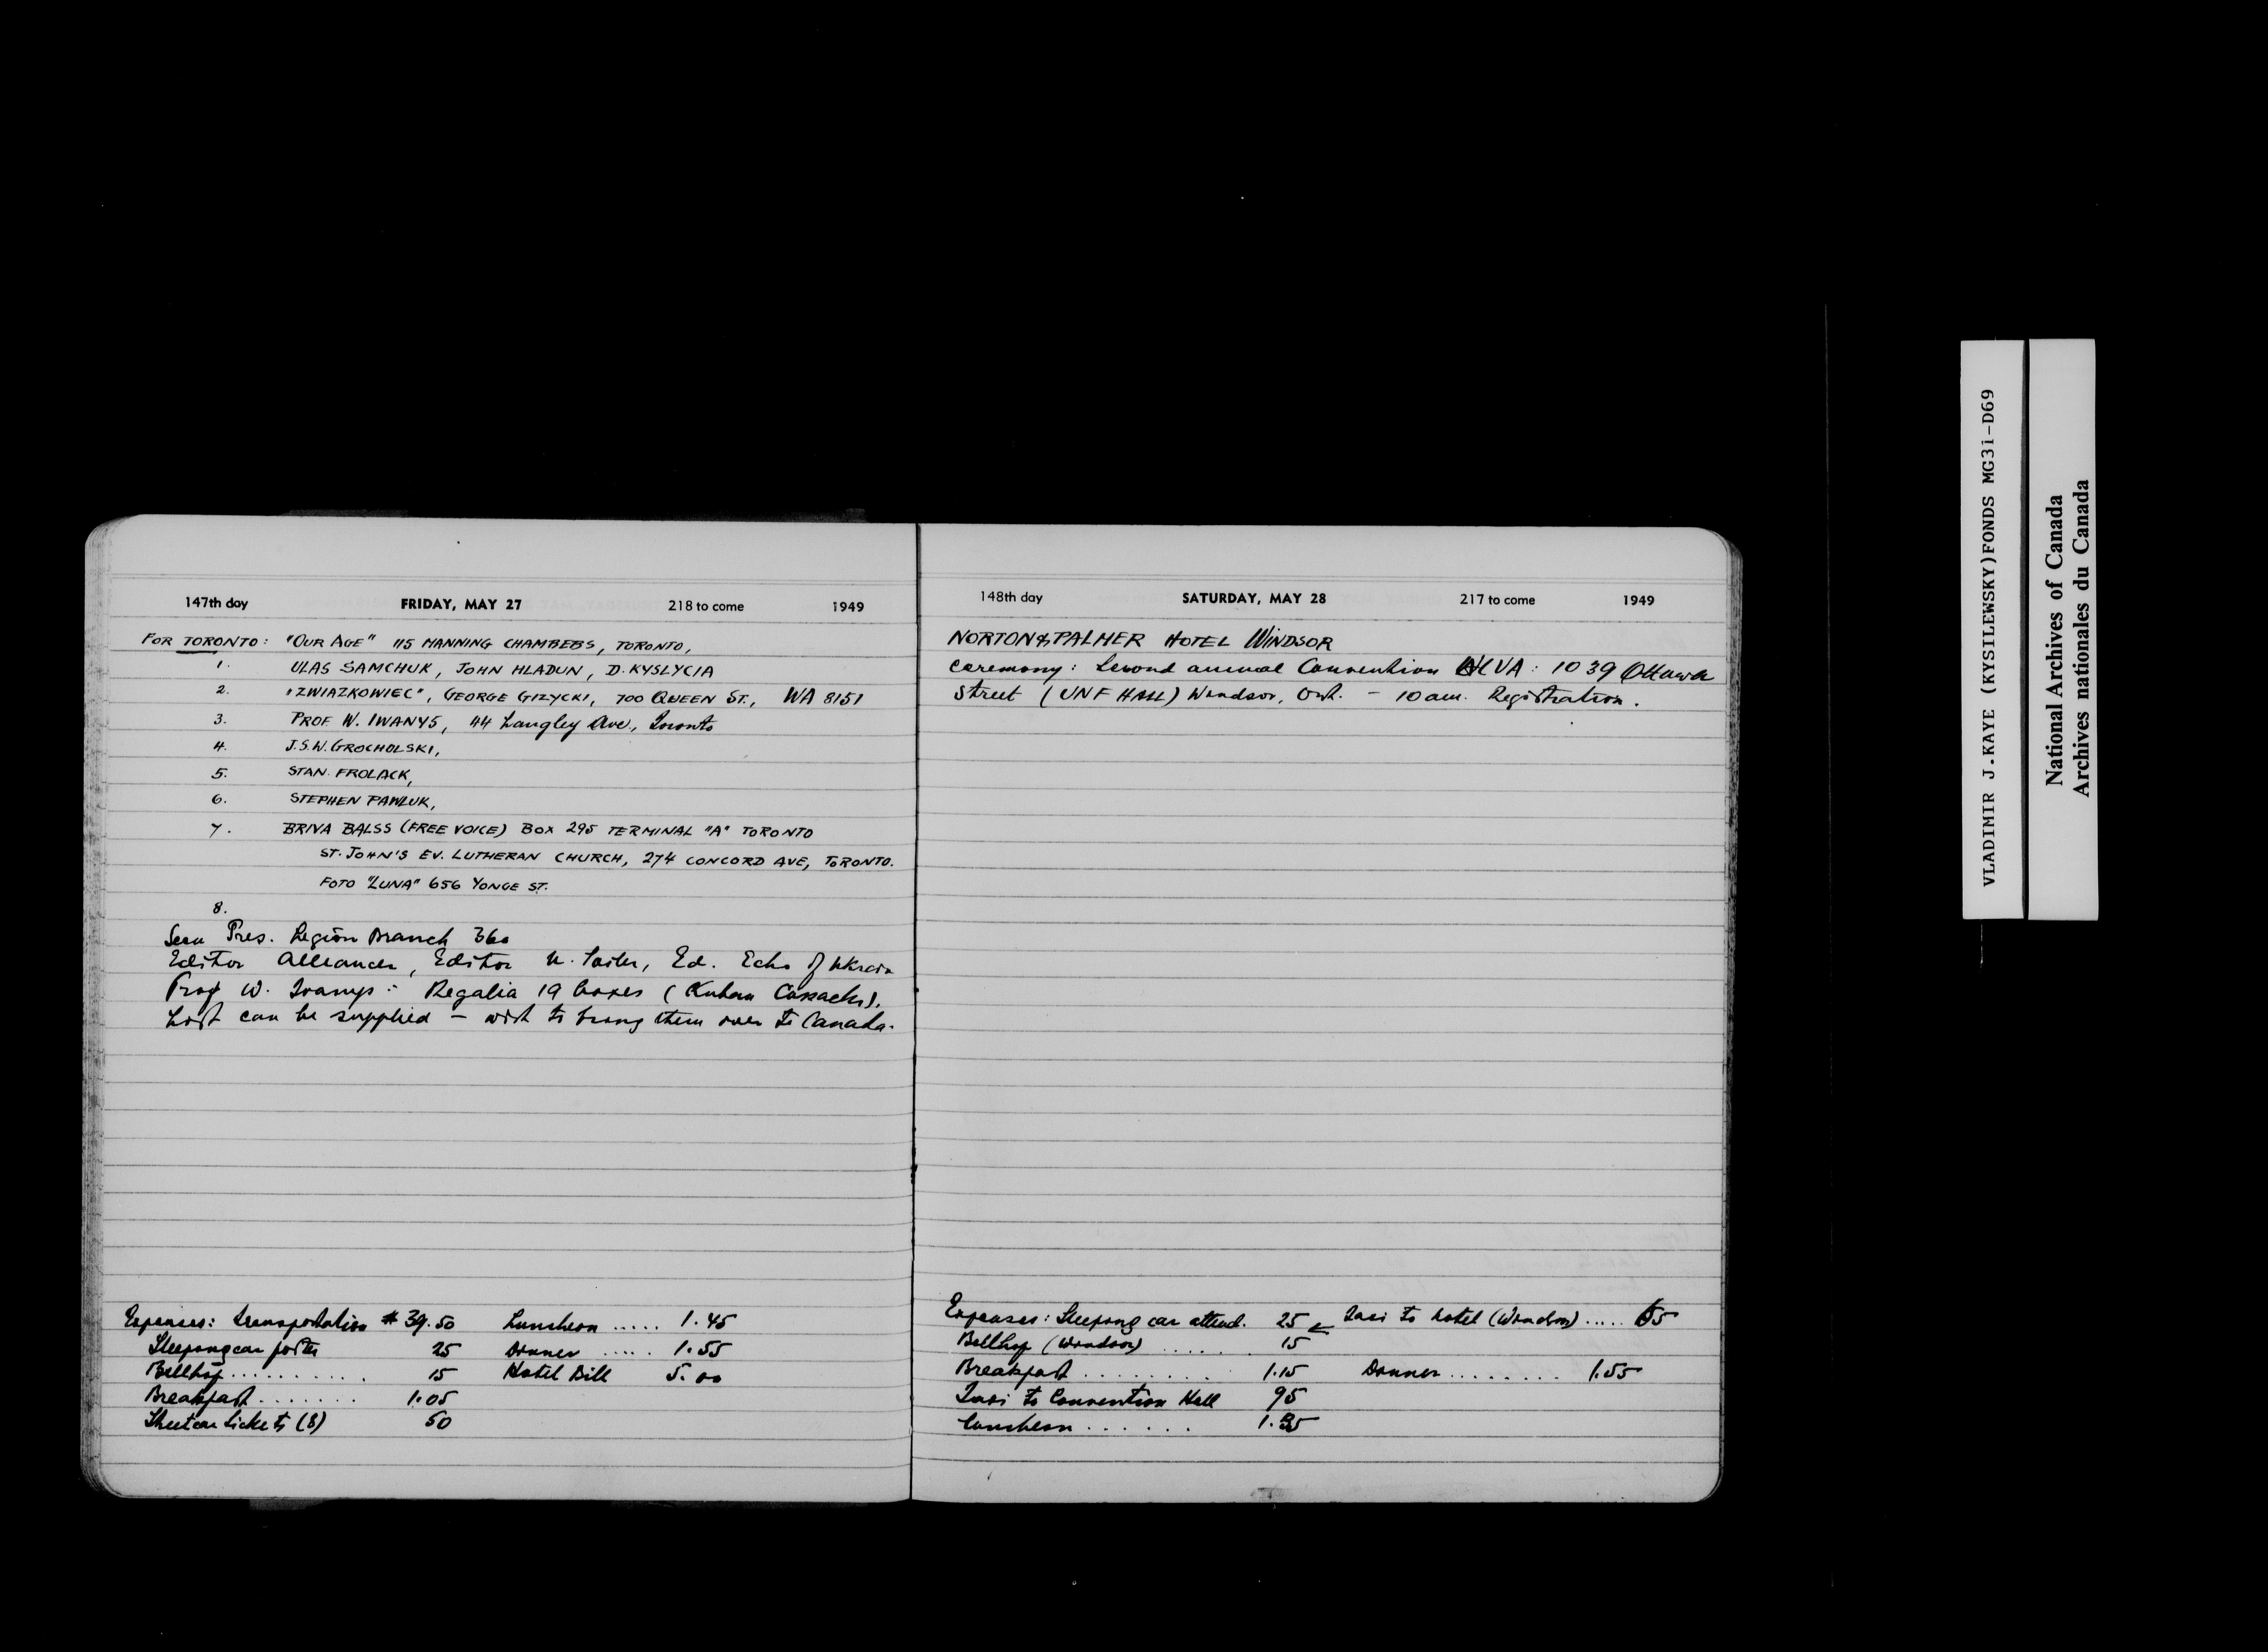 147th day FRIDAY, MAY 27 218 to come 1949
FOR TORONTO: "OUR AGE" 115 MANNING CHAMBERS, TORONTO,
1. ULAS SAMCHUK, JOHN HLADUN, D. KYSLYCIA
2. "ZWIAZKOWIEC", GEORGE GIZYCKI, 700 QUEEN ST., WA 8151
3. PROF W. IWANYS, 44 Langley Ave., Toronto
4. J.S.W. GROCHOLSKI,
5. STAN. FROLACK,
6. STEPHEN PAWLUK,
7. BRIVA BALSS (FREE VOICE) BOX 295 TERMINAL "A" TORONTO
ST. JOHN'S EV. LUTHERAN CHURCH, 274 CONCORD AVE, TORONTO.
FOTO "LUNA" 656 YONGE ST.
8.
Seen Pres. Legion Branch 360
Editor Alliancer, Editor Ed. Echo of Ukrain
Prof W. Ivanys: Regalia 19 boxes (Kuban Cossacks).
List can be supplied – wish to bring them over to Canada.
Expenses: transportation $39.50 Luncheon ..... 1.45
Sleeping car porter 25 Dinner ..... 1.55
Bellhop .......... 15 Hotel Bill 5.00
Breakfast ....... 1.05
Streetcar tickets (8) 50
148th day SATURDAY, MAY 28 217 to come 1949
NORTON & PALMER HOTEL WINDSOR
ceremony: Second annual Convention UCVA: 1039 Ottawa
Street (UNF HALL) Windsor, Ont. – 10 am. Registration.
Expenses: Sleeping car attend. 25 Taxi to hotel (Windsor) ..... 65
Bellhop (Windsor) ...... 15
Breakfast ......... 1.15 Dinner ........ 1.55
Taxi to Convention Hall 95
Luncheon ...... 1.35
VLADIMIR J.KAYE (KYSILEWSKY)FONDS MG3i-D69
National Archives of Canada
Archives nationales du Canada